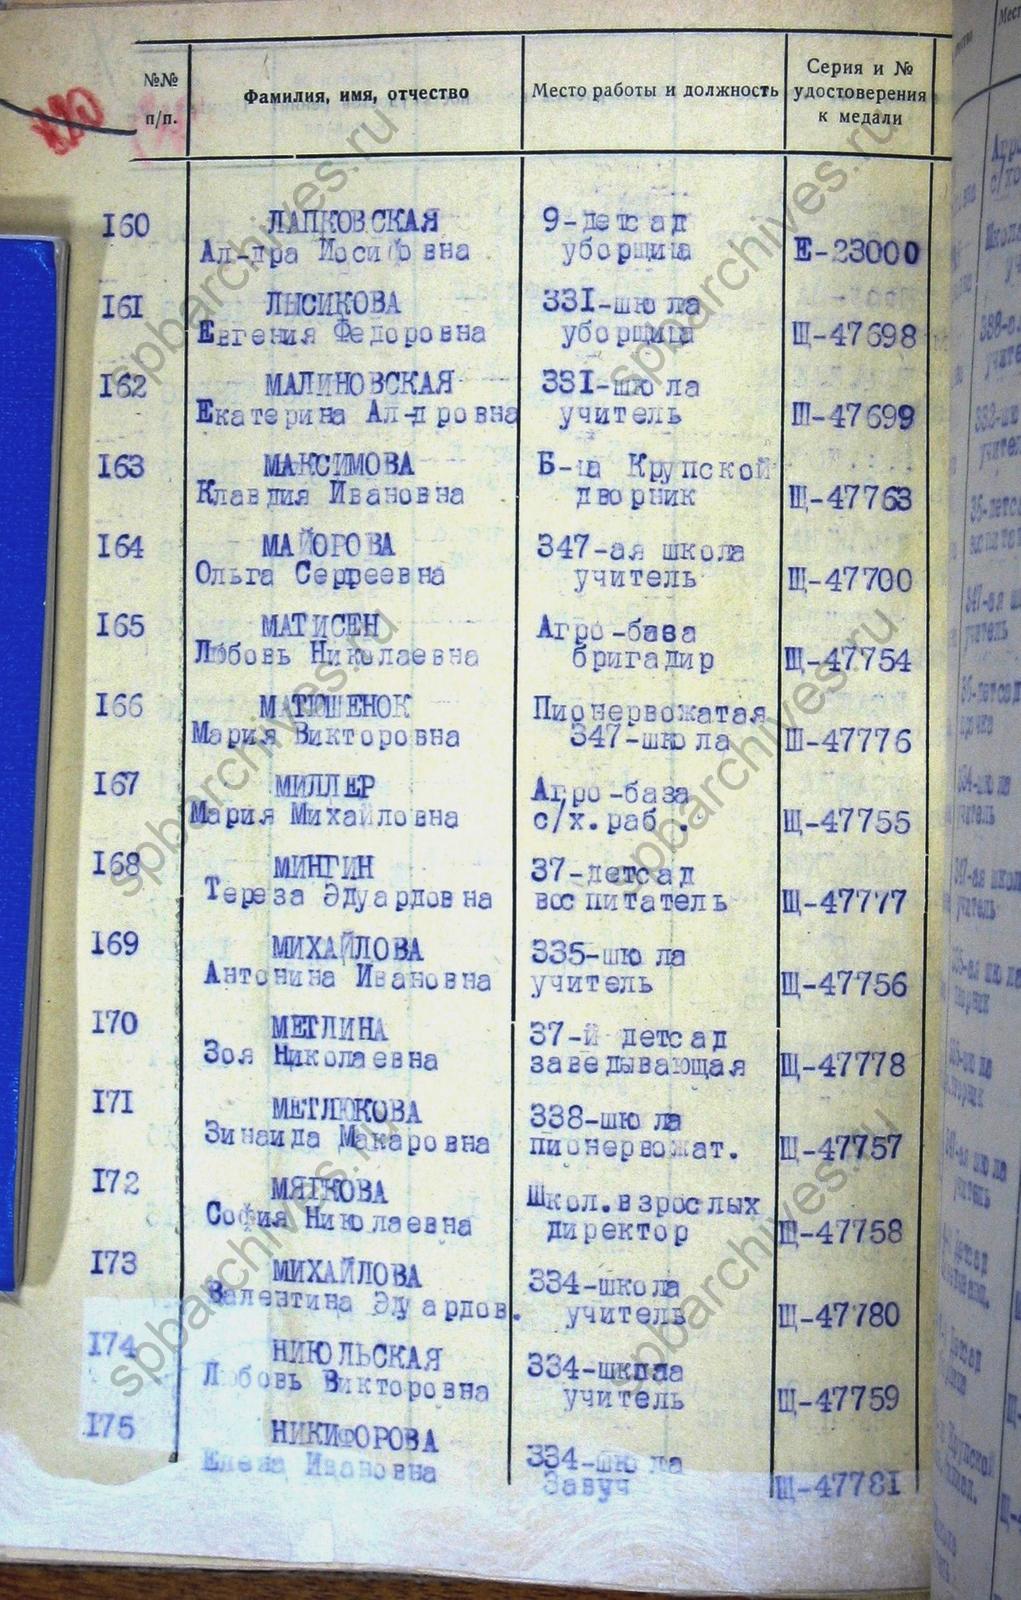 №№ п/п.
Фамилия, имя, отчество
Место работы и должность
Серия и № удостоверения к медали
160 ЛАПКОВСКАЯ 9-детсад
Ал-дра Иосифовна уборщица Е-23000
161 ЛЫСИКОВА 331-школа
Евгения Федоровна уборщица Щ-47698
162 МАЛИНОВСКАЯ 331-школа
Екатерина Ал-дровна учитель Щ-47699
163 МАКСИМОВА Б-ца Крупской
Клавдия Ивановна дворник Щ-47763
164 МАЙОРОВА 347-ая школа
Ольга Сергеевна учитель Щ-47700
165 МАТИСЕН Агро-база
Любовь Николаевна бригадир Щ-47754
166 МАТЮШЕНОК Пионервожатая
Мария Викторовна 347-школа Щ-47776
167 МИЛЛЕР Агро-база
Мария Михайловна с/х.раб. Щ-47755
168 МИНГИН 37-детсад
Тереза Эдуардовна воспитатель Щ-47777
169 МИХАЙЛОВА 335-школа
Антонина Ивановна учитель Щ-47756
170 МЕТЛИНА 37-й детсад
Зоя Николаевна заведывающая Щ-47778
171 МЕТЛЮКОВА 338-школа
Зинаида Макаровна пионервожат. Щ-47757
172 МЯГКОВА Школ.взрослых
София Николаевна директор Щ-47758
173 МИХАЙЛОВА 334-школа
Валентина Эдуардов. учитель Щ-47780
174 НИКОЛЬСКАЯ 334-школа
Любовь Викторовна учитель Щ-47759
175 НИКИФОРОВА 334-школа
Елена Ивановна Завуч Щ-47781
spbarchives.ru
spbarchives.ru
spbarchives.ru
spbarchives.ru
spbarchives.ru
spbarchives.ru